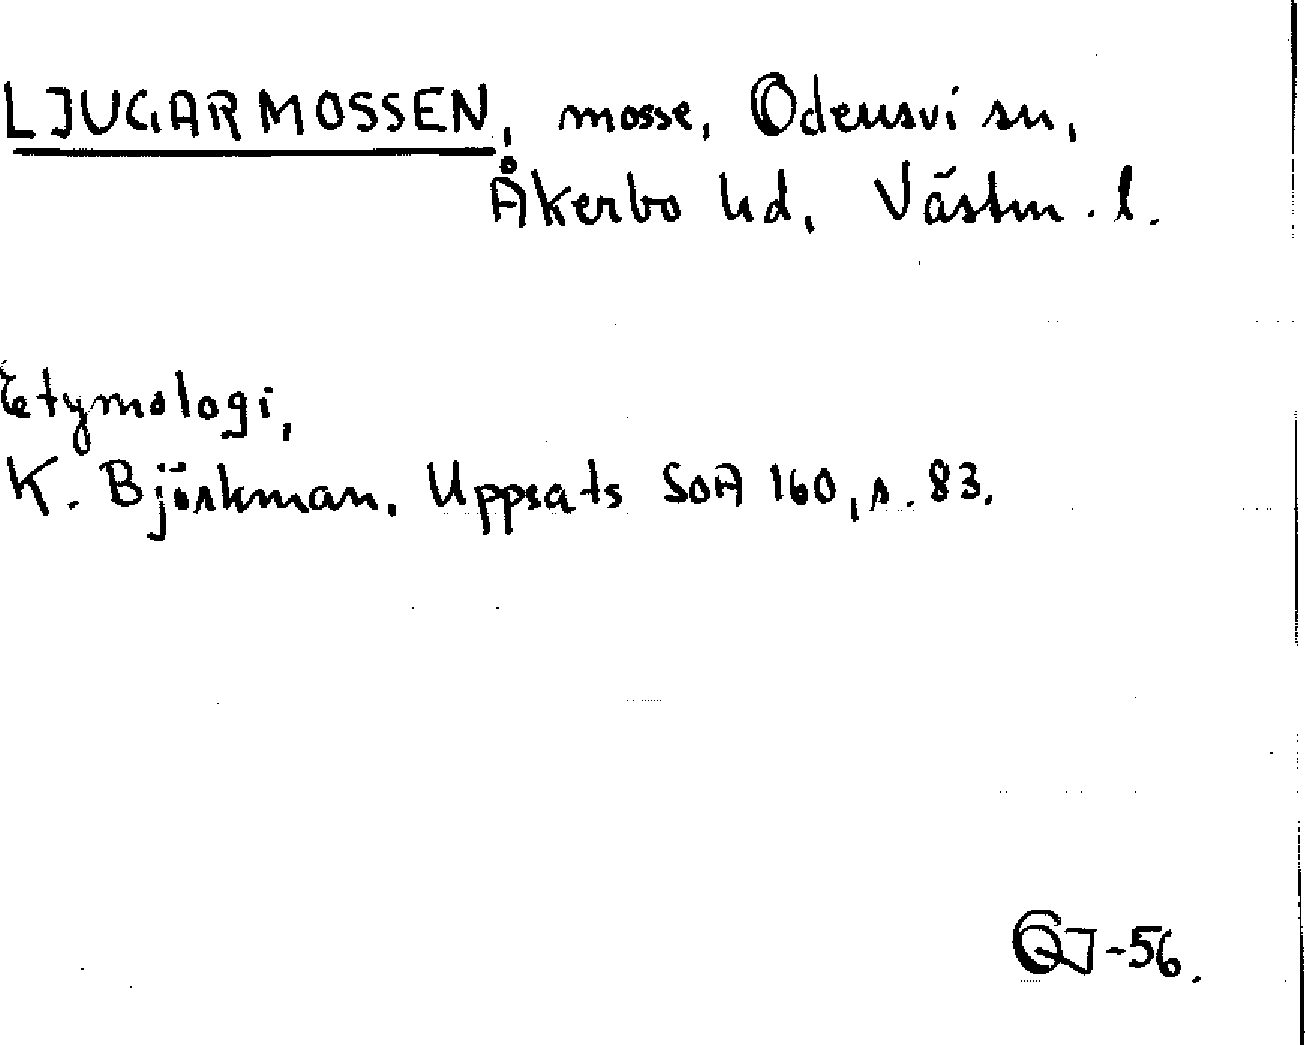 LJUGARMOSSEN, mosse, Odensvi sn,
Åkerbo hd, Västm. l.
Etymologi,
K. Björkman. Uppsats SOA 160, s. 83.
-56.